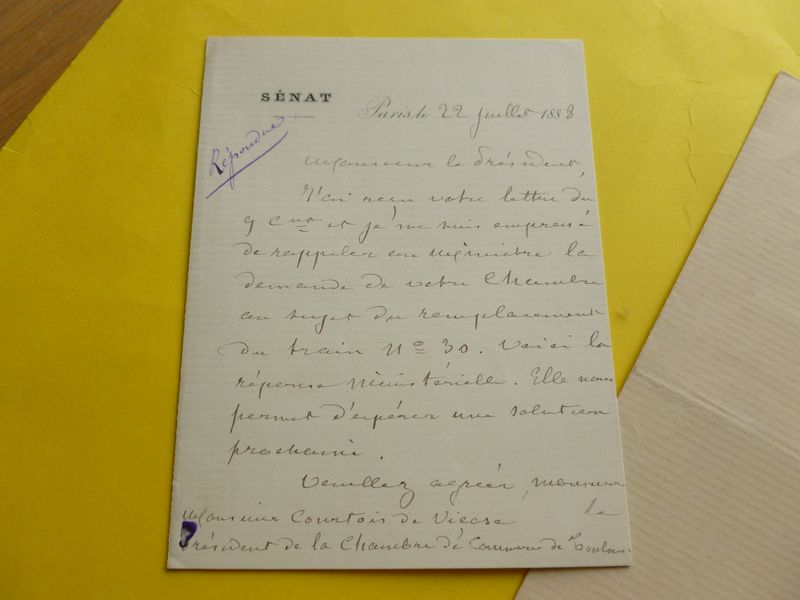 SÉNAT
Paris, le 22 juillet 1888
Répondue
Monsieur le Président,
J'ai reçu votre lettre du
9 Cnt et je me suis empressé
de rappeler au Ministère la
demande de votre Chambre
au sujet du remplacement
du train No 30. Voici la
réponse Ministérielle. Elle nous
permet d'espérer une solution
prochaine.
Veuillez agréer, Monsieur
le
Monsieur Courtois de Viçose
Président de la Chambre de Commerce de Toulouse